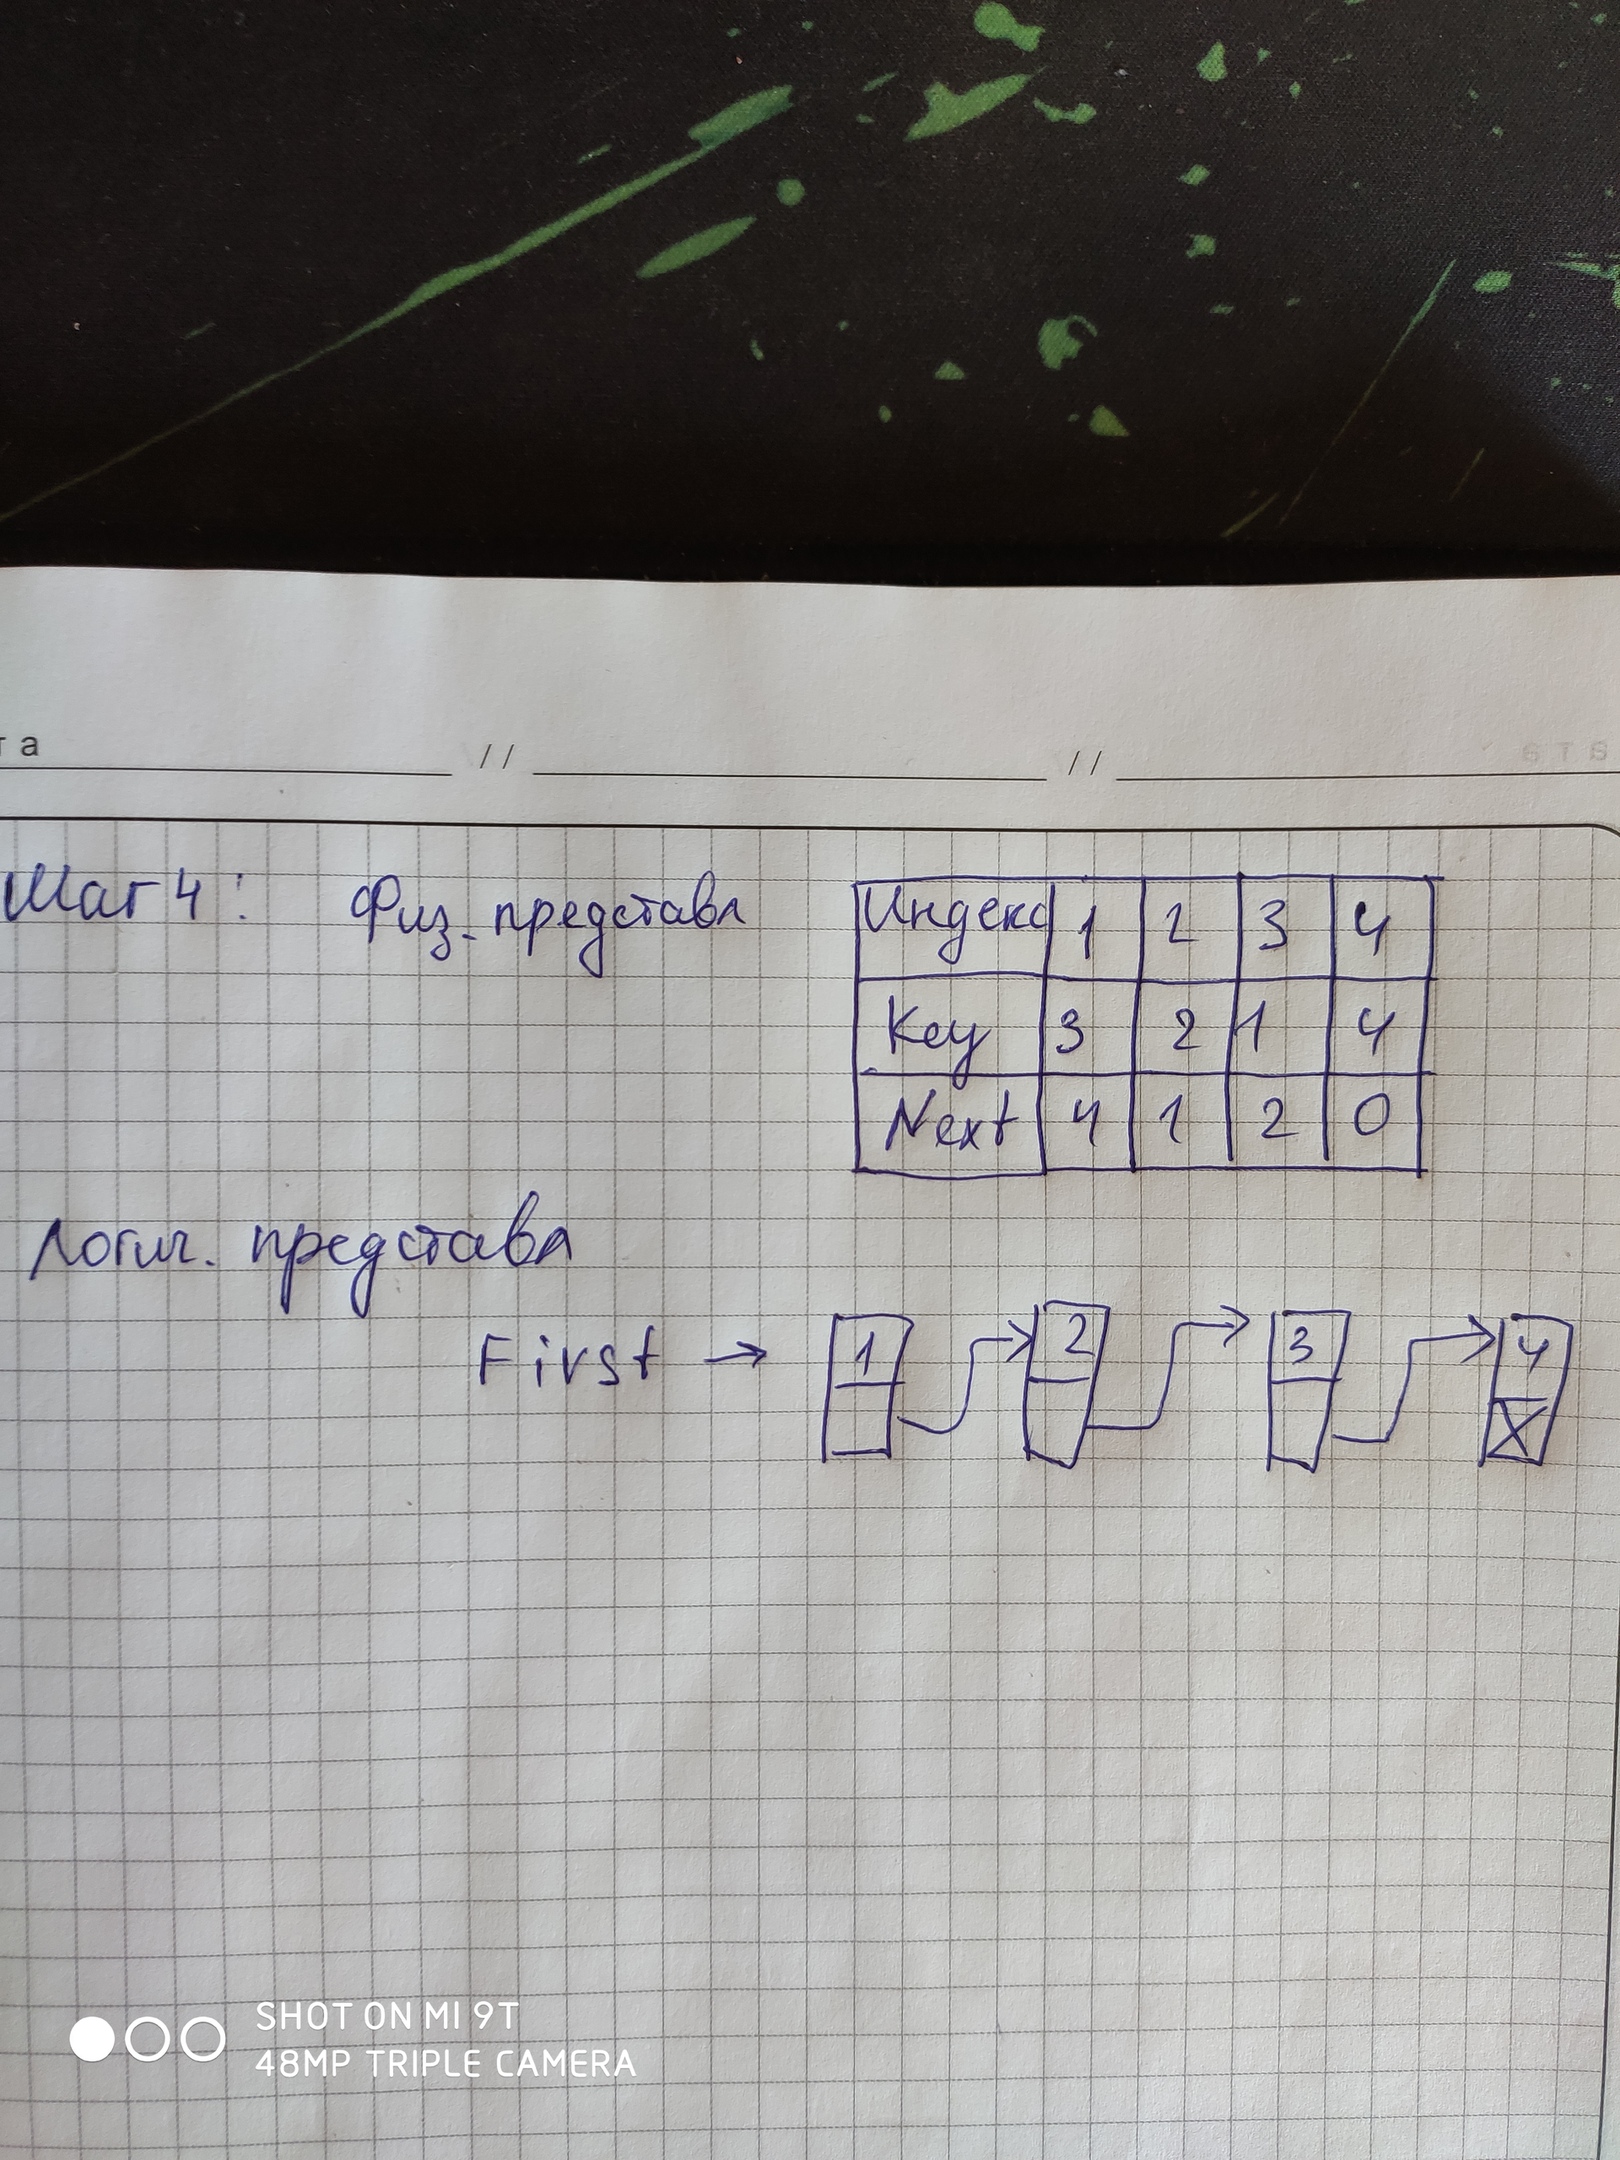 та // //
Шаг 4: Физ. представл
Индекс 1 2 3 4
Key 3 2 1 4
Next 4 1 2 0
Логич. представл
First → 1 2 3 4
SHOT ON MI 9T
48MP TRIPLE CAMERA